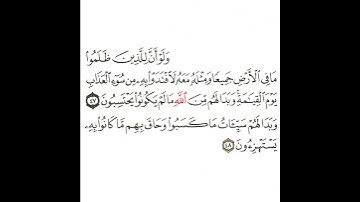 وَلَوْ أَنَّ لِلَّذِينَ ظَلَمُوا۟
مَا فِى ٱلْأَرْضِ جَمِيعًا وَمِثْلَهُۥ مَعَهُۥ لَٱفْتَدَوْا۟ بِهِۦ مِن سُوٓءِ ٱلْعَذَابِ
يَوْمَ ٱلْقِيَـٰمَةِ وَبَدَا لَهُم مِّنَ ٱللَّهِ مَا لَمْ يَكُونُوا۟ يَحْتَسِبُونَ ٤٧
وَبَدَا لَهُمْ سَيِّـَٔاتُ مَا كَسَبُوا۟ وَحَاقَ بِهِم مَّا كَانُوا۟ بِهِۦ
يَسْتَهْزِءُونَ ٤٨